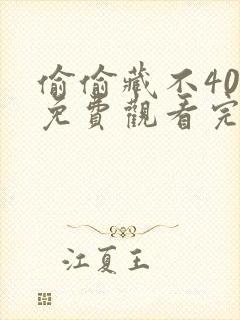 偷偷藏不40
免費觀看完
江夏王